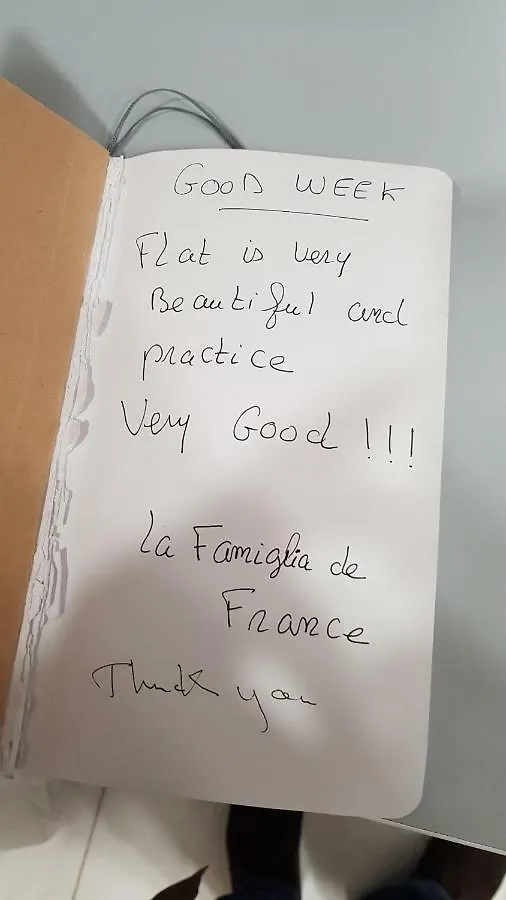 GOOD WEEK
Flat is very
Beautiful and
practice
Very Good !!!
la Famiglia de
France
Thank you